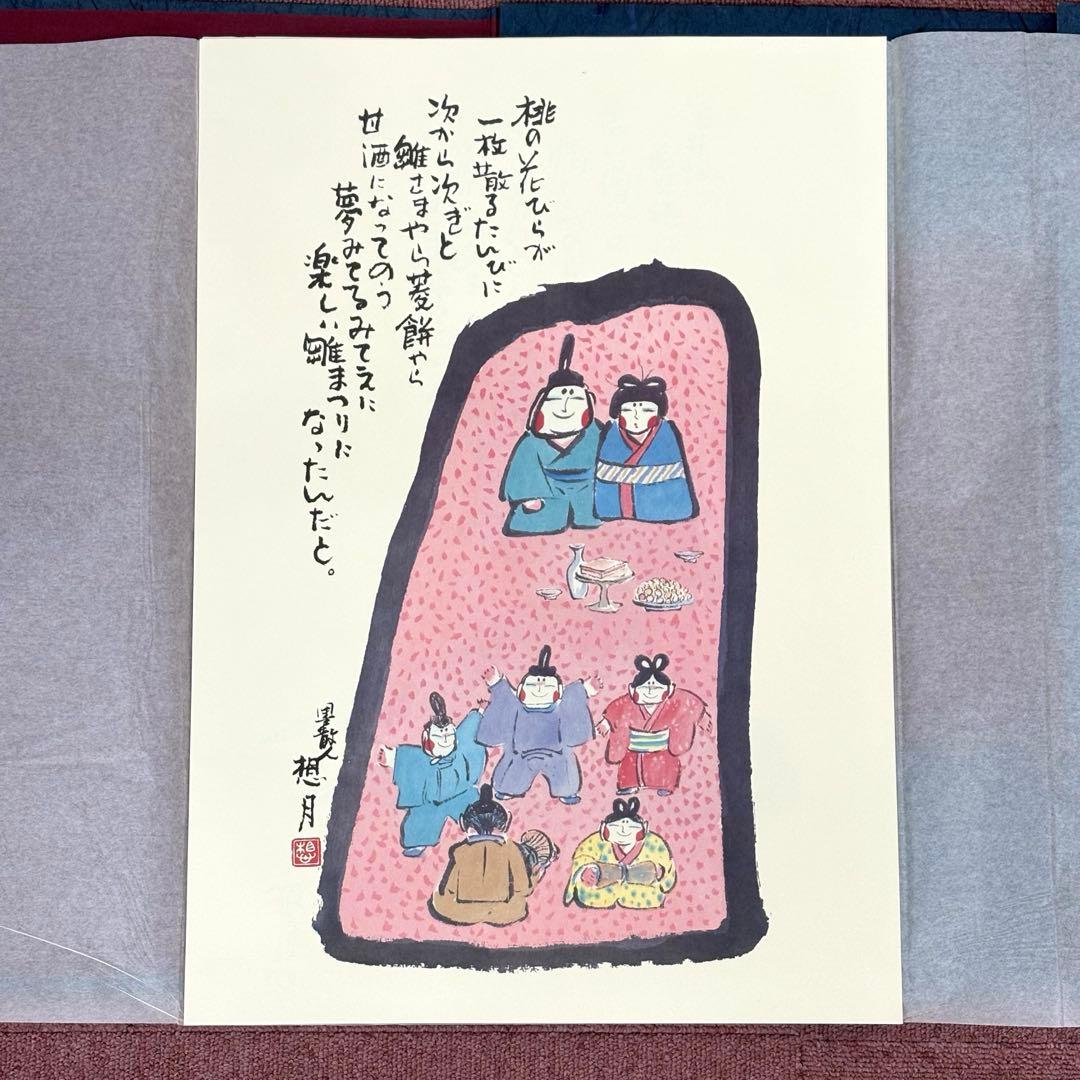 桃の花びらが
一枚散るたんびに
次から次ぎと
雛さまやら菱餅やら
甘酒になってのう
夢みてるみてえに
楽しい雛まつりに
なったんだと。
想月